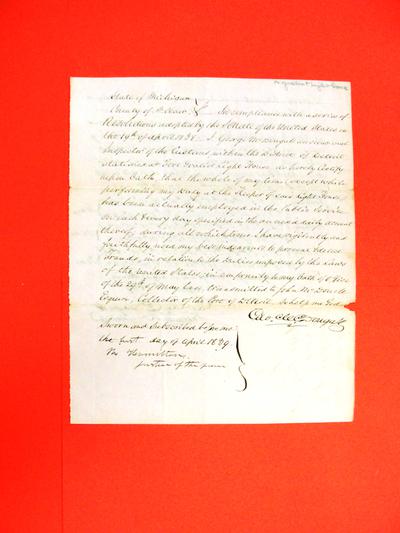 State of Michigan
County of St Clair } In compliance with a series of
Resolutions adopted by the Senate of the United States on
the 19th of April 1838. I George McDougall an
Inspector of the Customs within the District of Detroit
stationed at Fort Gratiot Light House do hereby Certify
upon Oath that the whole of my time (except while
performing my duty as the Keeper of said Light House
has been actually employed in the Public Service
on each & every day specified in the annexed daily account
thereof, during all which time I have vigilantly and
faithfully used my best endeavors to prevent & detect
Frauds, in relation to the Duties imposed by the Laws
of the United States, in conformity to my Oath of Office
of the 29th of May last, transmitted to John McDonell
Esquire, Collector of the Port of Detroit. So help me God
Geo. McDougall
Sworn and Subscribed before me
the first day of April 1839
justice of the peace